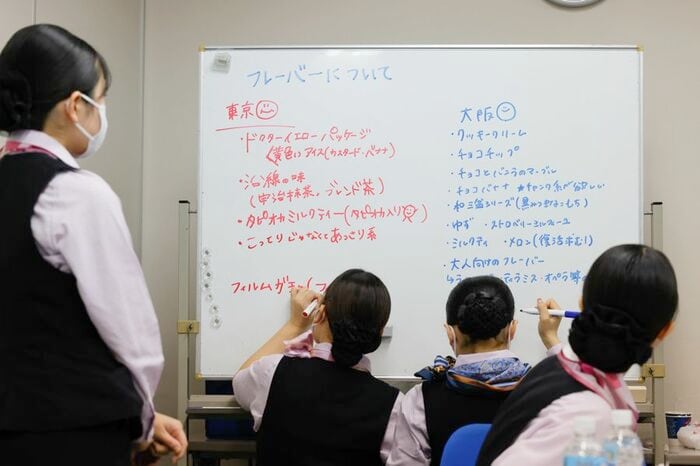 フレーバーについて
東京
・ドクターイエローパッケージ
黄色いアイス(カスタード・バナナ)
・沿線の味
(宇治抹茶、ブレンド茶)
・タピオカミルクティー(タピオカ入り)
・こってりじゃなくてあっさり系
フィルムが
大阪
・クッキークリーム
・チョコチップ
・チョコとバニラのマーブル
・チョコバナナ ★チャンク系が欲しい
・和三盆シリーズ(黒みつきなこもち)
・ゆず ・ストロベリーミルフィーユ
・ミルクティ ・メロン(復活求む!)
・大人向けのフレーバー
ティラミス・オペラ等